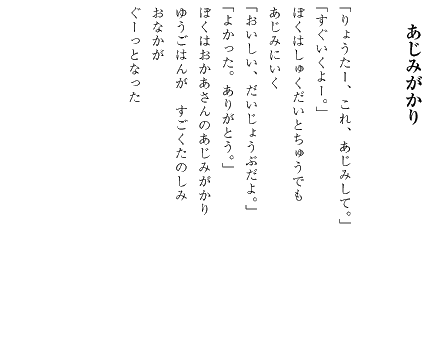 あじみがかり
「りょうたー、これ、あじみして。」
「すぐいくよー。」
ぼくはしゅくだいとちゅうでも
あじみにいく
「おいしい、だいじょうぶだよ。」
「よかった。ありがとう。」
ぼくはおかあさんのあじみがかり
ゆうごはんが　すごくたのしみ
おなかが
ぐーっとなった